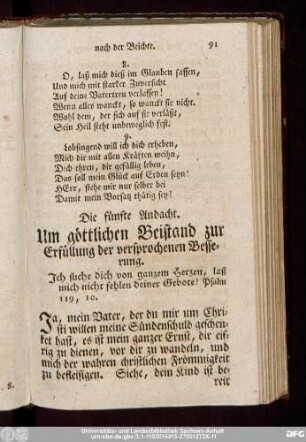 nach der Beichte. 91
8.
O, laß mich dieß im Glauben fassen,
Und mich mit starker Zuversicht
Auf deine Vatertreu verlassen!
Wenn alles wanckt, so wanckt sie nicht.
Wohl dem, der sich auf sie verläßt,
Sein Heil steht unbeweglich fest.
9.
Lobsingend will ich dich erheben,
Mich dir mit allen Kräften weihn,
Dich ehren, dir gefällig leben,
Das soll mein Glück auf Erden seyn!
HErr, stehe mir nur selber bei
Damit mein Vorsatz thätig sey!
Die fünfte Andacht.
Um göttlichen Beistand zur
Erfüllung der versprochenen Besse-
rung.
Ich suche dich von ganzem Herzen, laß
mich nicht fehlen deiner Gebote! Psalm
119, 10.
Ja, mein Vater, der du mir um Chri-
sti willen meine Sündenschuld geschen-
ket hast, es ist mein ganzer Ernst, dir eif-
rig zu dienen, vor dir zu wandeln, und
mich der wahren christlichen Frömmigkeit
zu befleißigen. Siehe, dein Kind ist be-
reit
8.
Universitäts- und Landesbibliothek Sachsen-Anhalt
urn:nbn:de:gbv:3:1-1192015415-270651273X-11
DFG